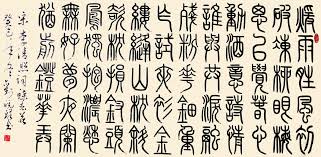 煖雨晴風初
破凍柳眼梅
腮已覺春心
動酒意詩情
誰與共淚融
殘粉花鈿重
乍試夾衫金
縷縫山枕斜
欹枕損釵頭
鳳獨抱濃愁
無好夢夜闌
猶剪鐙花弄
宋李清照詞蝶戀花
癸巳年冬